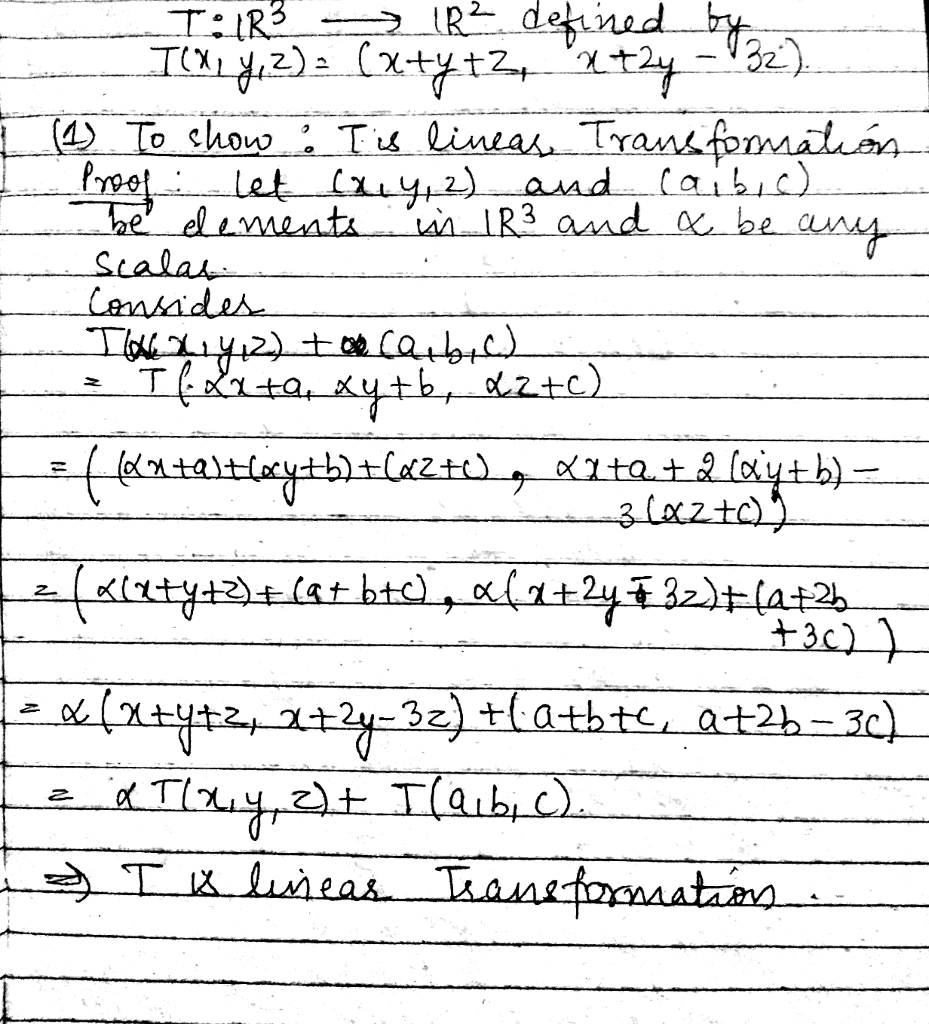 T: IR³ → IR² defined by
T(x, y, z) = (x+y+z, x+2y - 3z).
(1) To show : T is linear Transformation
Proof : let (x, y, z) and (a, b, c)
be elements in IR³ and α be any
Scalar.
Consider
T(α(x, y, z) + (a, b, c)
= T(αx+a, αy+b, αz+c)
= ((αx+a)+(αy+b)+(αz+c), αx+a+2(αy+b) –
3(αz+c))
= (α(x+y+z)+(a+b+c), α(x+2y-3z)+(a+2b
+3c))
= α(x+y+z, x+2y-3z) + (a+b+c, a+2b-3c)
= αT(x, y, z) + T(a, b, c).
⇒ T is linear Transformation.